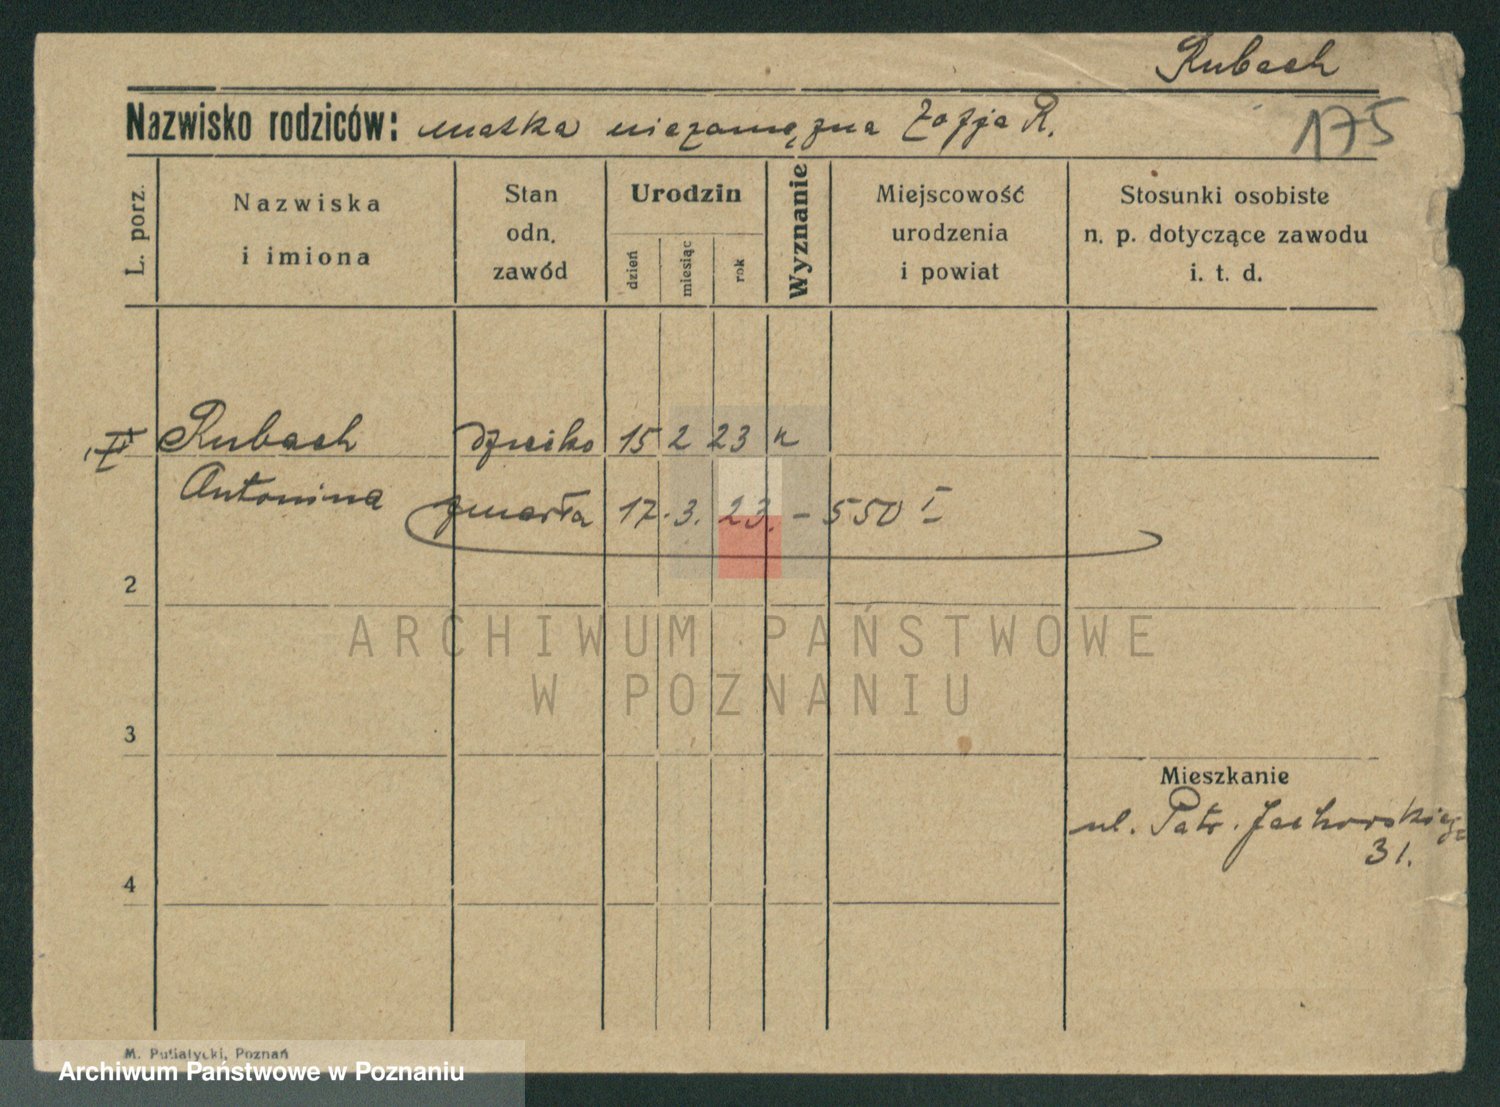 Rubach
Nazwisko rodziców: matka niezamężna Zofja R.
175
L. porz.
Nazwiska
i imiona
Stan
odn.
zawód
Urodzin
dzień
miesiąc
rok
Wyznanie
Miejscowość
urodzenia
i powiat
Stosunki osobiste
n. p. dotyczące zawodu
i. t. d.
Rubach dziecko 15 2 23 k
Antonina zmarła 17. 3. 23. – 550 I
2
ARCHIWUM PAŃSTWOWE
W POZNANIU
3
Mieszkanie
ul. Patr. Jackowskiego
31.
4
M. Putiatycki, Poznań
Archiwum Państwowe w Poznaniu